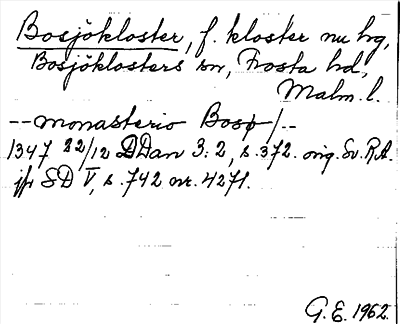 Bosjökloster, f. kloster nu hg,
Bosjöklosters sn, Frosta hd,
Malm. l.
-- monasterio Bosø /--
1347 22/12 DDan 3:2, s. 372. orig. Sv. R.A.
jfr SD V, s. 742 nr. 4271.
G. E. 1962.